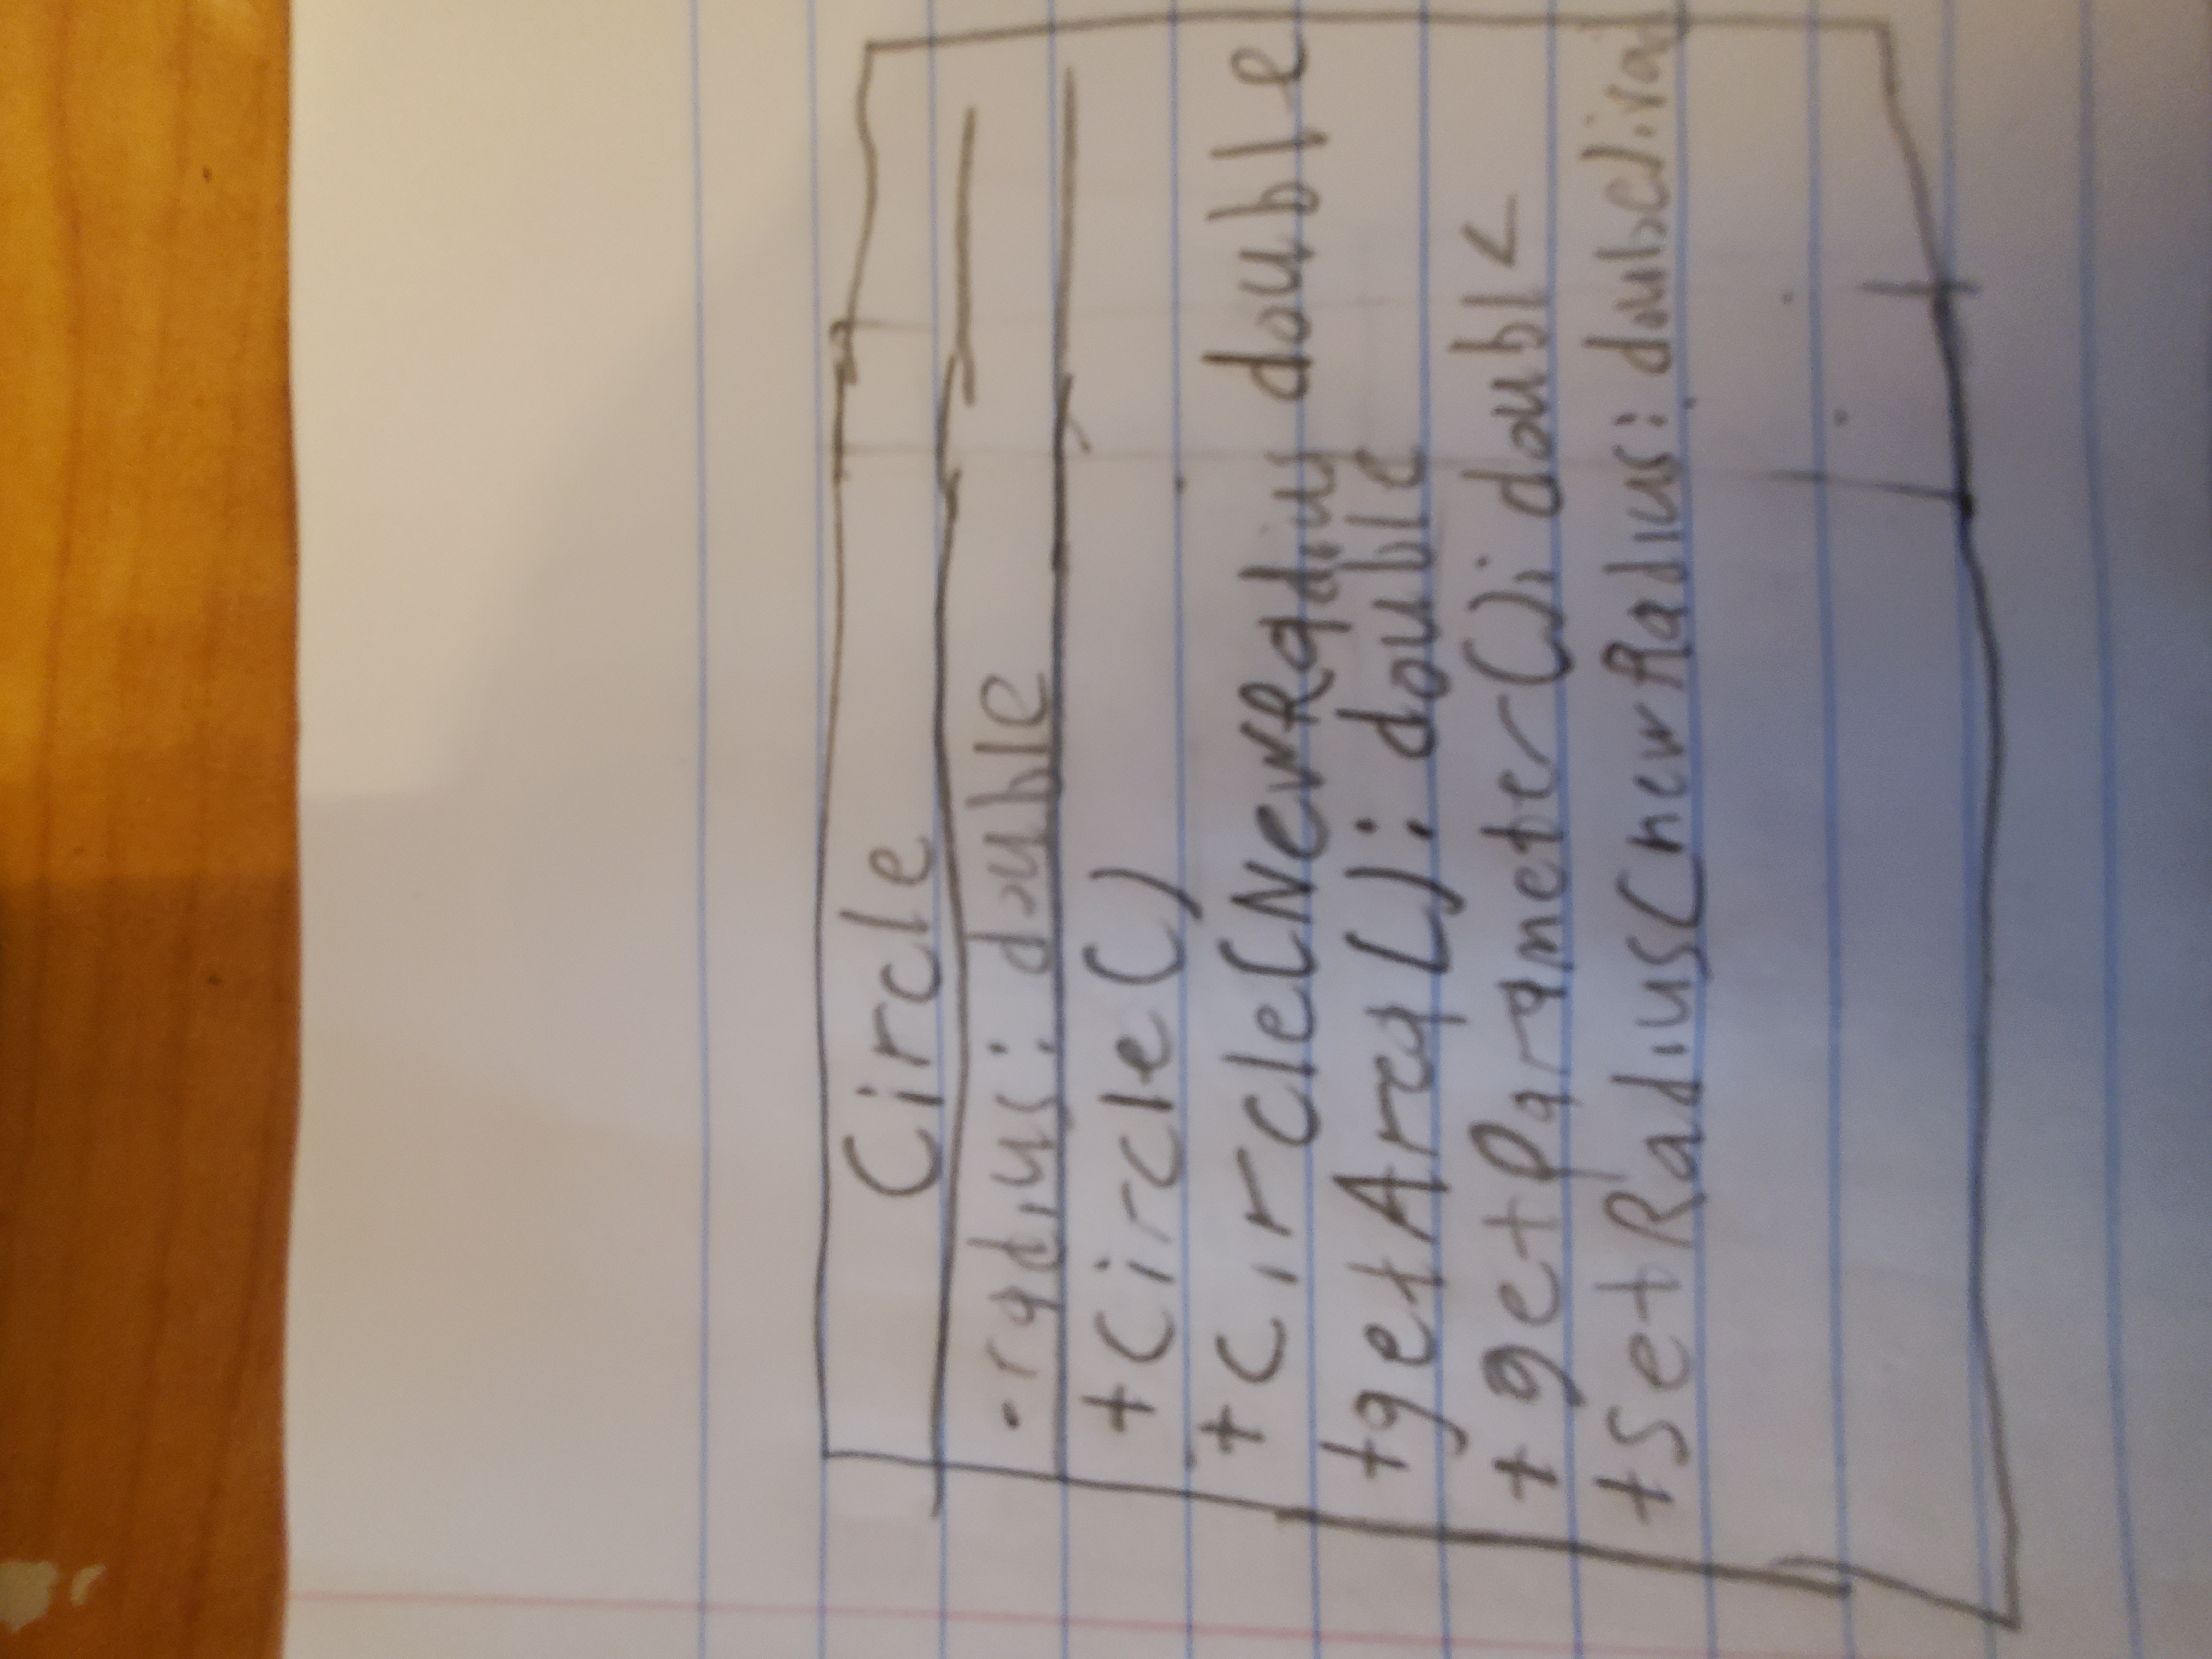 Circle
-radius: double
+Circle()
+Circle(NewRadius double
+getArea(): double
+getParameter(): double
+SetRadius(newRadius: